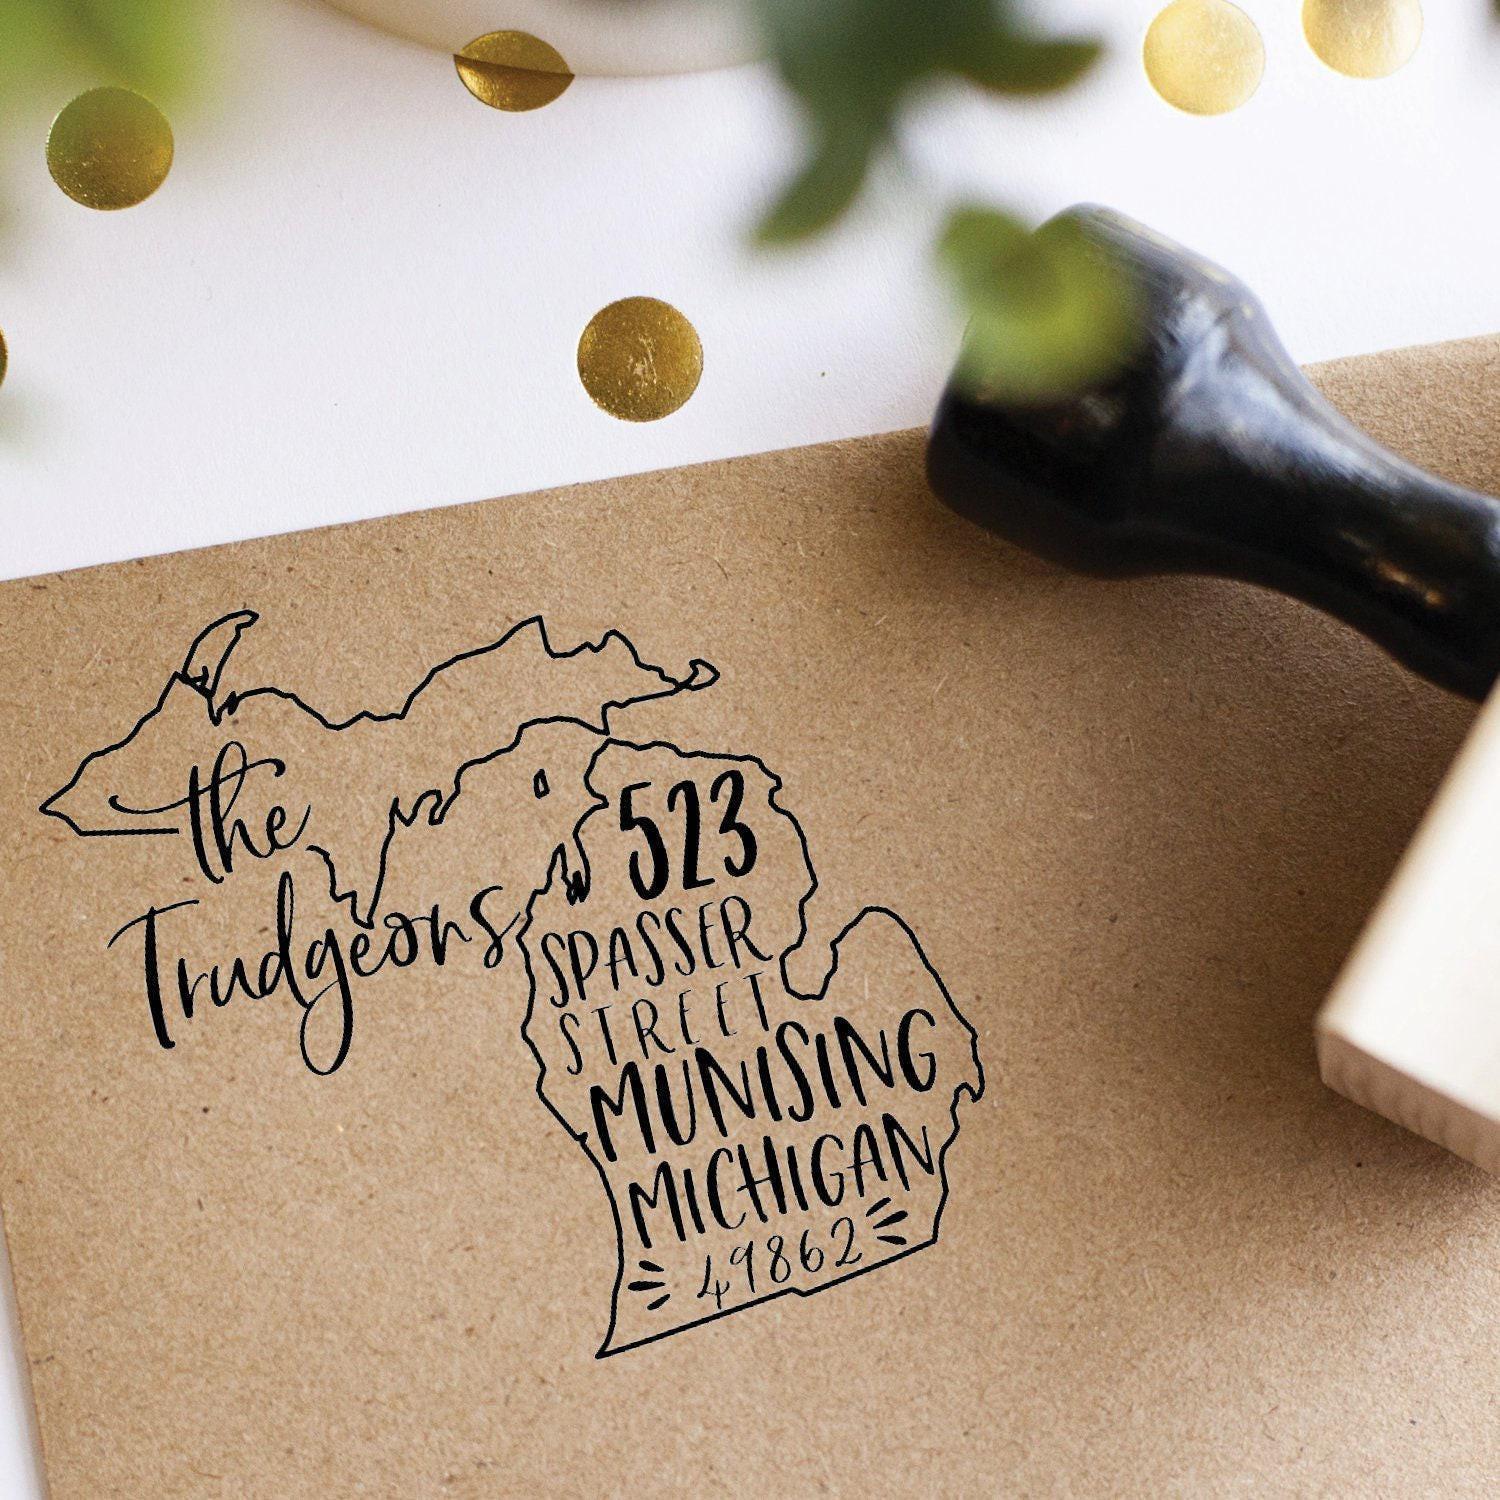 the
Trudgeons
523
SPASSER
STREET
MUNISING
MICHIGAN
49862